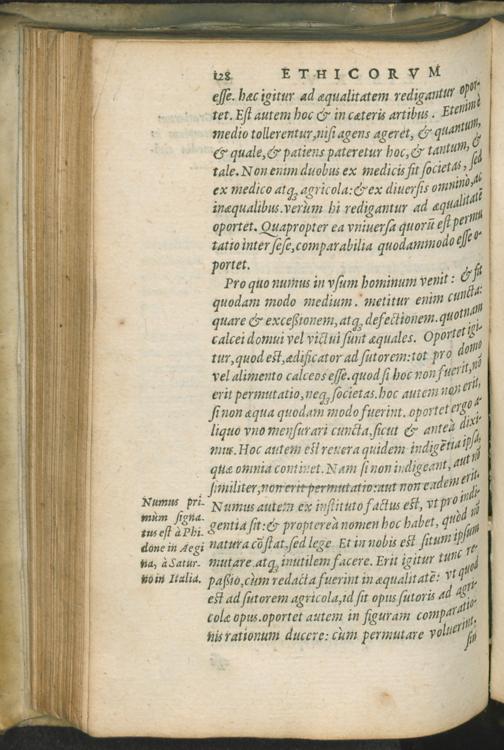 128 ETHICORVM
esse. hæc igitur ad æqualitatem redigantur opor-
tet. Est autem hoc & in cæteris artibus. Etenim è
medio tollerentur, nisi agens ageret, & quantum,
& quale, & patiens pateretur hoc, & tantum, &
tale. Non enim duobus ex medicis fit societas, sed
ex medico atq; agricola: & ex diuersis omnino, ac
inæqualibus. verùm hi redigantur ad æqualitatē
oportet. Quapropter ea vniuersa quorū est permu
tatio inter sese, comparabilia quodammodo esse o-
portet.
Pro quo numus in vsum hominum venit: & fit
quodam modo medium. metitur enim cuncta:
quare & exceßionem, atq; defectionem. quotnam
calcei domui vel victui sunt æquales. Oportet igi-
tur, quod est, ædificator ad sutorem: tot pro domo
vel alimento calceos esse. quod si hoc non fuerit, nō
erit permutatio, neq; societas. hoc autem non erit,
si non æqua quodam modo fuerint. oportet ergo a-
liquo vno mensurari cuncta. sicut & anteà dixi-
mus. Hoc autem est reuera quidem indigētia ipsa,
quæ omnia continet. Nam si non indigeant, aut nō
similiter, non erit permutatio: aut non eadem erit.
Numus autem ex instituto factus est, vt pro indi-
gentia sit: & propterea nomen hoc habet, quòd nō
natura cōstat, sed lege Et in nobis est situm ipsum
mutare. atq; inutilem facere. Erit igitur tunc re-
paßio, cùm redacta fuerint in æqualitatē: vt quod
est ad sutorem agricola, id sit opus sutoris ad agri-
colæ opus. oportet autem in figuram comparatio-
nis rationum ducere: cùm permutare voluerint,
Numus pri-
mùm signa-
tus est à Phi
done in Aegi
na, à Satur-
no in Italia.